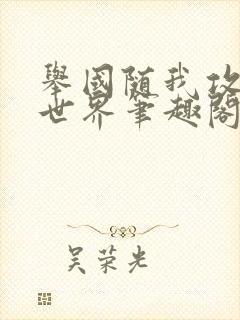 舉國随我攻
世界筆趣閣
吴荣光